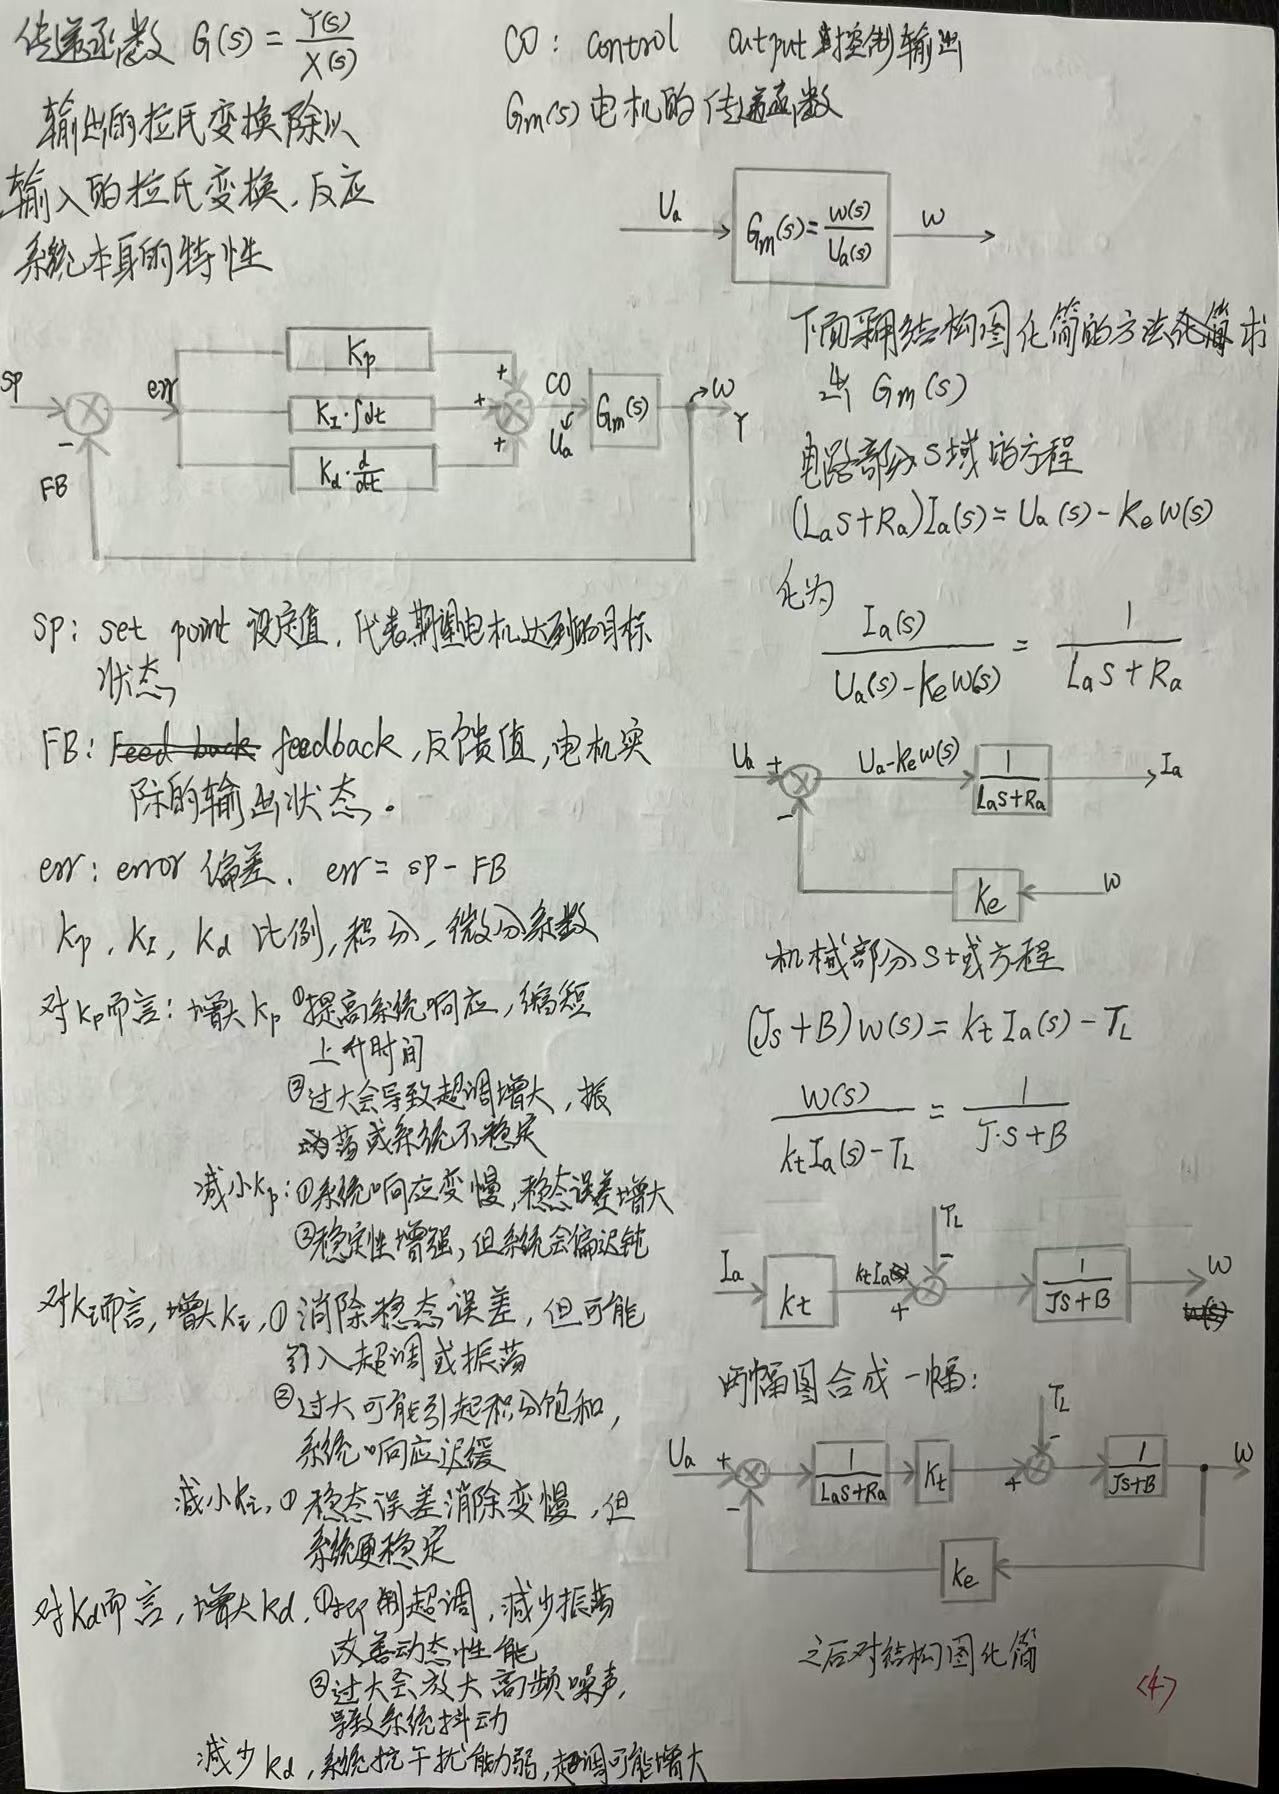 传递函数 G(s) = Y(s) / X(s)
输出的拉氏变换除以
输入的拉氏变换，反应
系统本身的特性
CO: control output 控制输出
Gm(s) 电机的传递函数
Ua Gm(s) = W(s) / Ua(s) W
SP err Kp + CO Gm(s) W
KI·∫dt + Ua Y
- FB Kd·d/dt +
SP: set point 设定值，代表期望电机达到的目标
状态
FB: Feed back feedback，反馈值，电机实
际的输出状态。
err: error 偏差，err = SP - FB
Kp，KI，Kd 比例，积分，微分系数
对Kp而言：增大Kp ①提高系统响应，缩短
上升时间
②过大会导致超调增大，振
荡或系统不稳定
减小Kp：①系统响应变慢，稳态误差增大
②稳定性增强，但系统会偏迟钝
对KI而言，增大KI，①消除稳态误差，但可能
引入超调或振荡
②过大可能引起积分饱和，
系统响应迟缓
减小KI，①稳态误差消除变慢，但
系统更稳定
对Kd而言，增大Kd，①抑制超调，减少振荡
改善动态性能
②过大会放大高频噪声，
导致系统抖动
减少Kd，系统抗干扰能力弱，超调可能增大
下面采用结构图化简的方法化简求
出 Gm(s)
电路部分S域的方程
(LaS+Ra)Ia(s) = Ua(s) - KeW(s)
化为
Ia(s) / (Ua(s) - KeW(s)) = 1 / (LaS + Ra)
Ua + Ua-KeW(s) 1 / (LaS+Ra) Ia
-
Ke W
机械部分S域方程
(Js+B)W(s) = KtIa(s) - TL
W(s) / (KtIa(s) - TL) = 1 / (J·S+B)
TL
Ia Kt KtIa(s) + - 1 / (JS+B) W
W(s)
两幅图合成一幅：
TL
Ua + 1 / (LaS+Ra) Kt + - 1 / (JS+B) W
-
Ke
之后对结构图化简
<4>